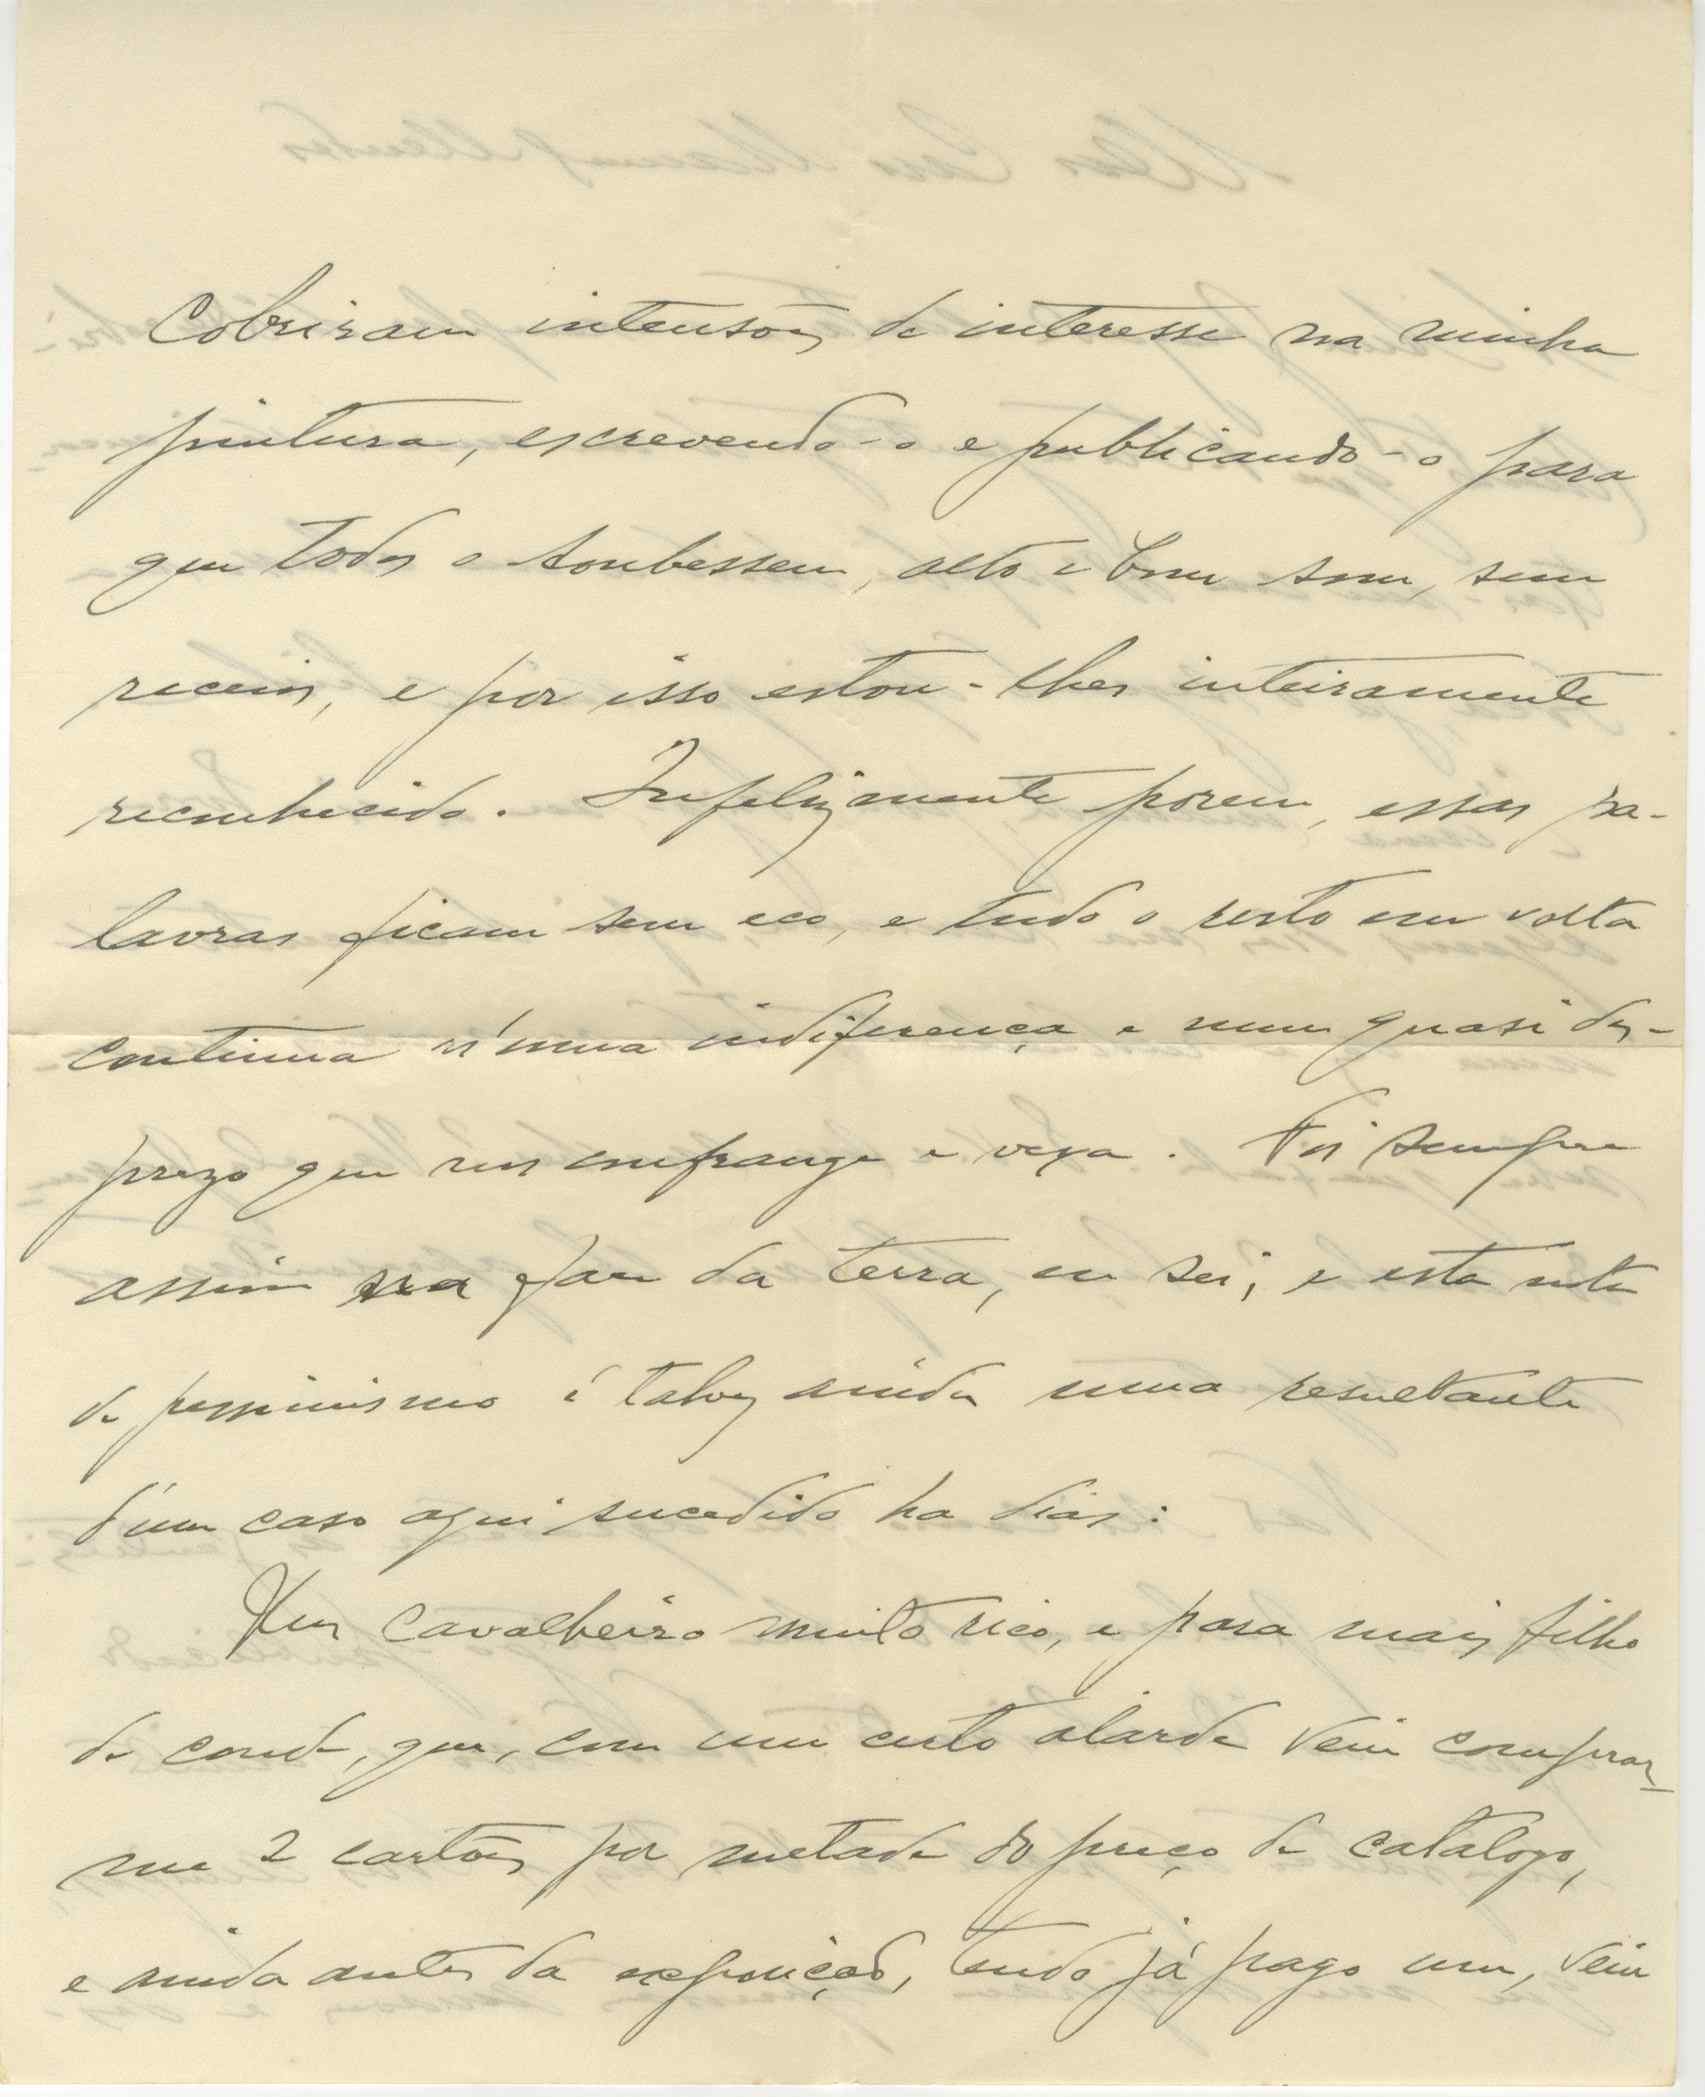 cobriram intensões de interesse na minha
pintura, escrevendo-o e publicando-o para
que todos o soubessem, alto e bom som, sem
receios, e por isso estou-lhes inteiramente
reconhecido. Infelizmente porem, essas pa-
lavras ficam sem eco, e tudo o resto em volta
continua n'uma indiferença e num quasi des-
prezo que nos confrange e vexa. Foi sempre
assim na face da terra, eu sei; e esta nota
de pessimismo é talvez ainda uma resultante
d'um caso aqui sucedido ha dias:
Um cavalheiro muito rico, e para mais filho
de conde, que, com um certo alarde vem comprar-
me 2 cartões por metade do preço de catalogo,
e ainda antes da exposição, tendo já pago um, vem